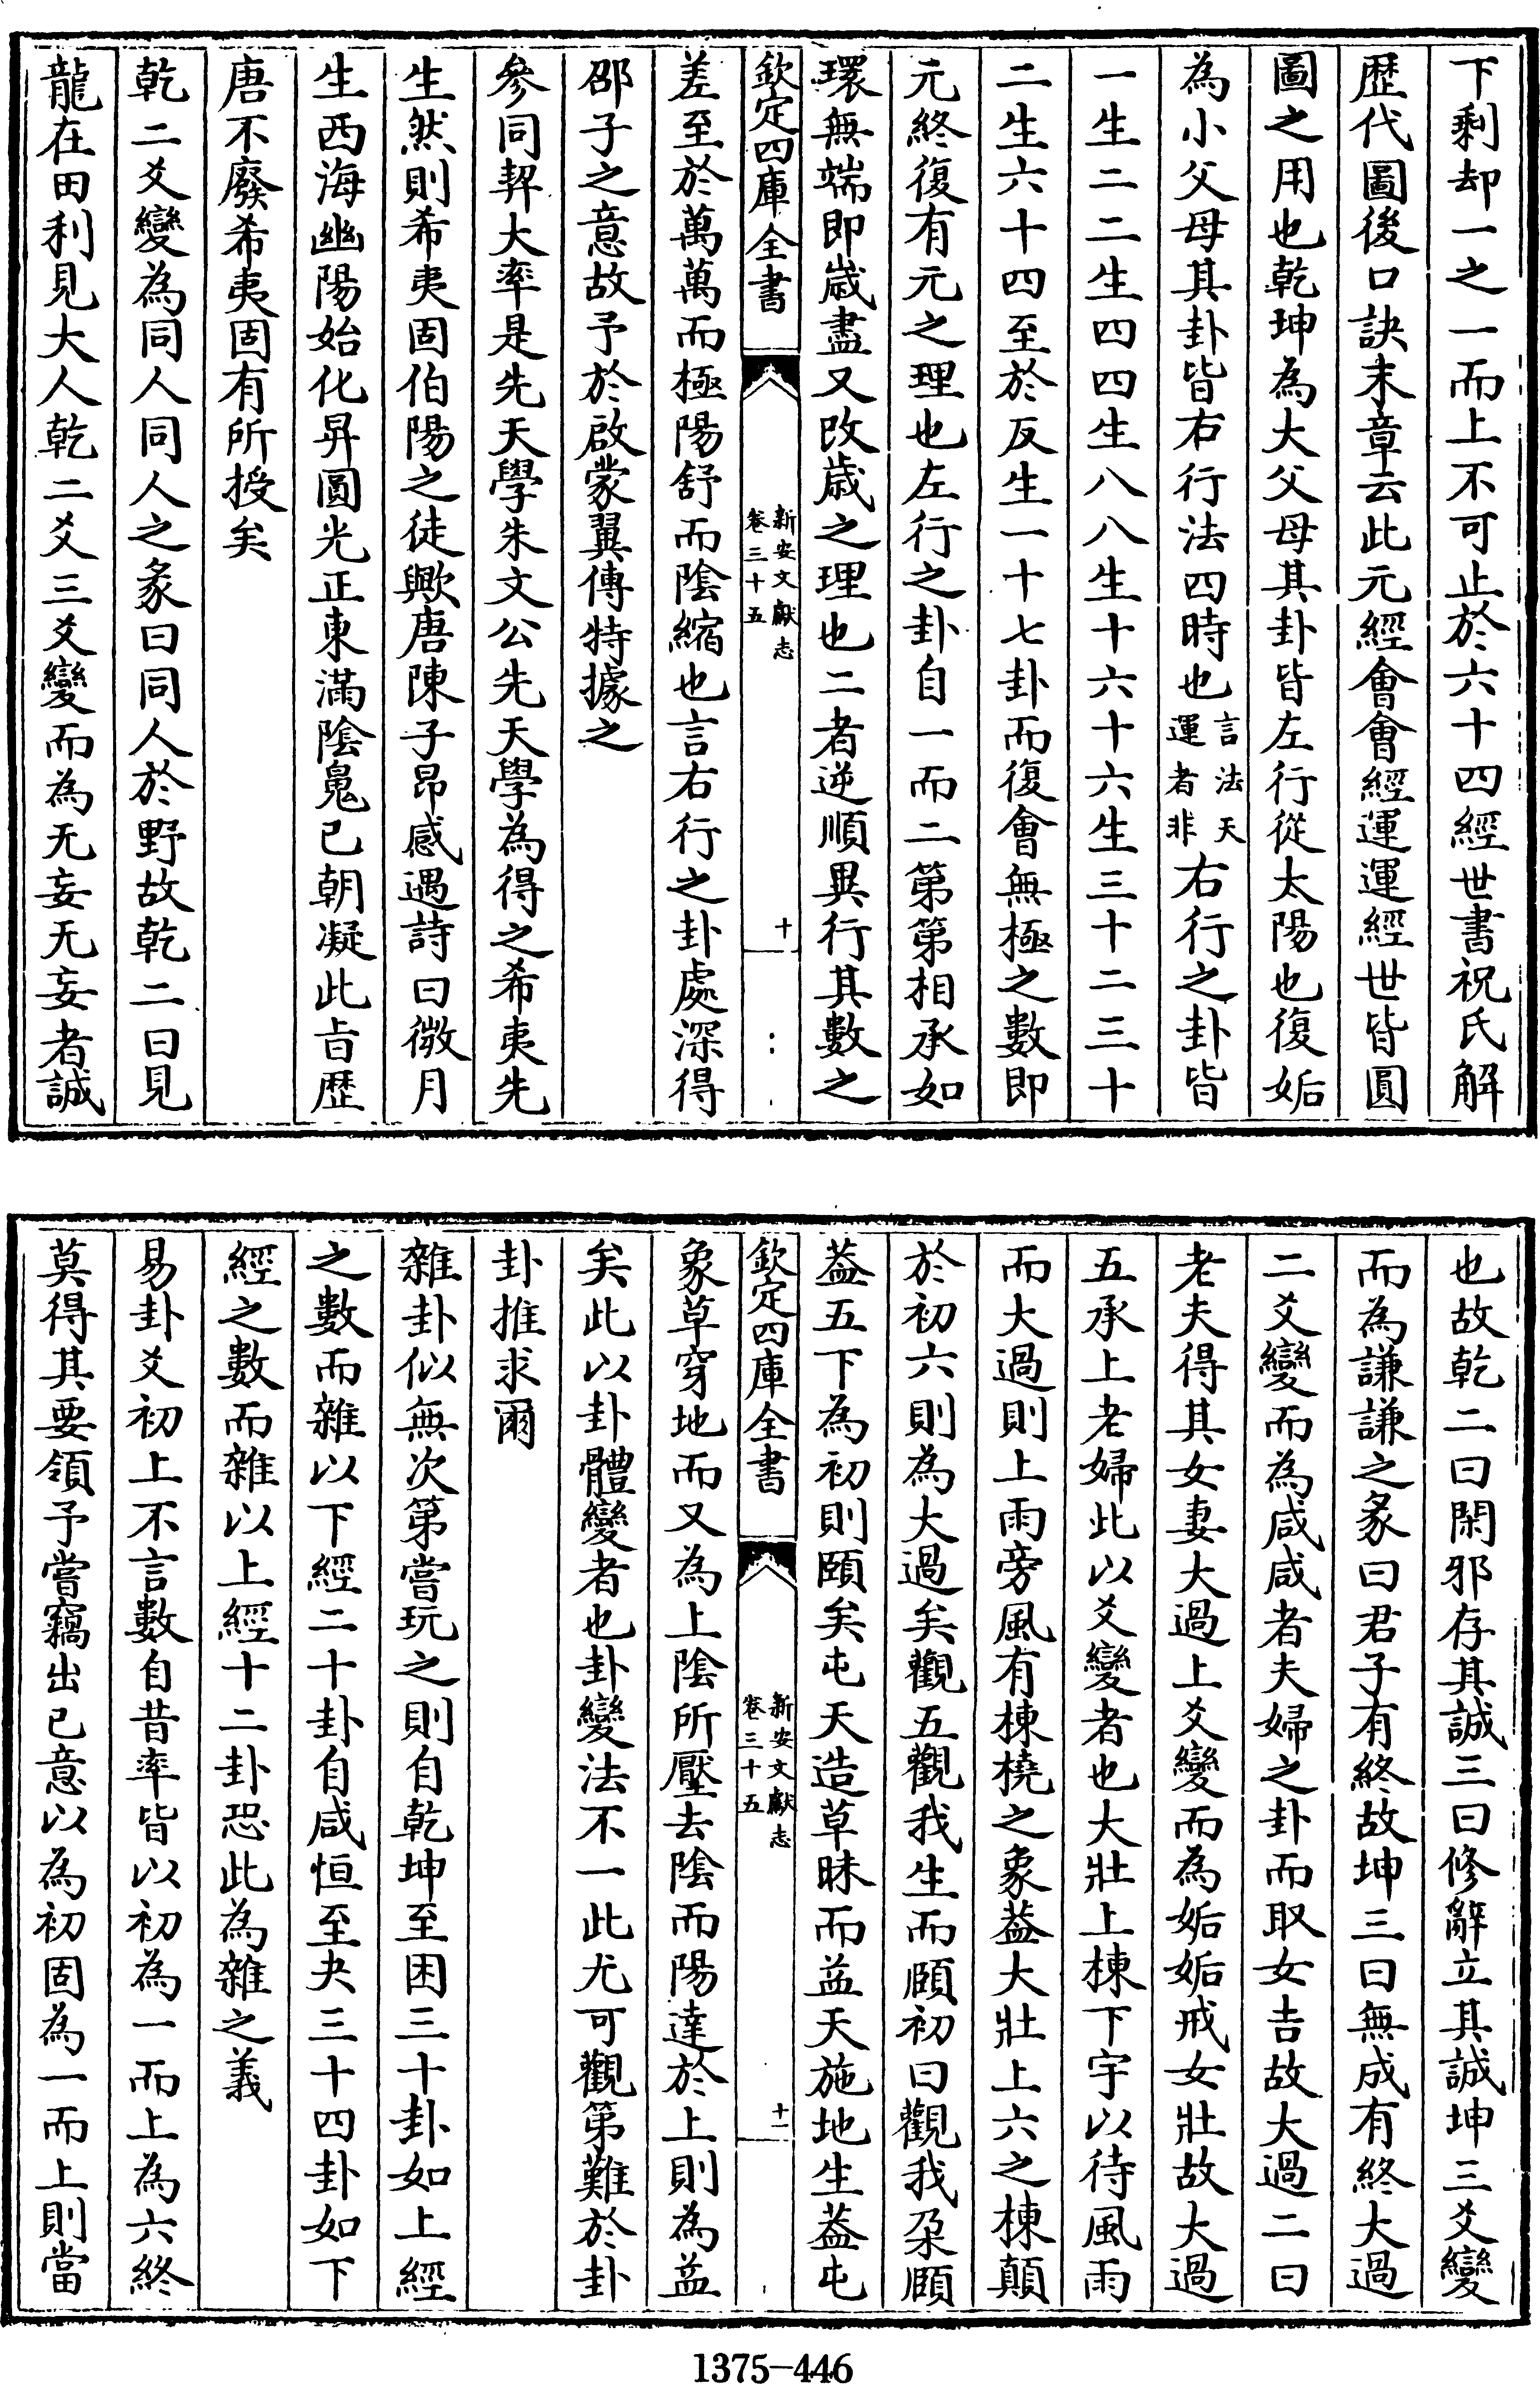 下剩却一之一而上不可止於六十四經世書祝氏解
歴代圖後口訣末章云此元經會會經運運經世皆圓
圖之用也乾坤為大父母其卦皆左行從太陽也復姤
為小父母其卦皆右行法四時也言法天運者非右行之卦皆
一生二二生四四生八八生十六十六生三十二三十
二生六十四至於反生一十七卦而復會無極之數即
元終復有元之理也左行之卦自一而二第第相承如
環無端即歲盡又改歲之理也二者逆順異行其數之
欽定四庫全書
新安文獻志
卷三十五
十
差至於萬萬而極陽舒而陰縮也言右行之卦處深得
邵子之意故予於啟蒙翼傳特據之
參同契大率是先天學朱文公先天學為得之希夷先
生然則希夷固伯陽之徒歟唐陳子昂感遇詩曰微月
生西海幽陽始化昇圓光正東滿陰魄已朝凝此㫖歴
唐不廢希夷固有所授矣
乾二爻變為同人同人之彖曰同人於野故乾二曰見
龍在田利見大人乾二爻三爻變而為无妄无妄者誠
也故乾二曰閑邪存其誠三曰修辭立其誠坤三爻變
而為謙謙之彖曰君子有終故坤三曰無成有終大過
二爻變而為咸咸者夫婦之卦而取女吉故大過二曰
老夫得其女妻大過上爻變而為姤姤戒女壯故大過
五承上老婦此以爻變者也大壯上棟下宇以待風雨
而大過則上雨旁風有棟橈之象葢大壯上六之棟顛
於初六則為大過矣觀五觀我生而頤初曰觀我朶頤
葢五下為初則頤矣屯天造草昧而益天施地生葢屯
欽定四庫全書
新安文獻志
卷三十五
十一
象草穿地而又為上陰所壓去陰而陽達於上則為益
矣此以卦體變者也卦變法不一此尤可觀第難於卦
卦推求爾
雜卦似無次第嘗玩之則自乾坤至困三十卦如上經
之數而雜以下經二十卦自咸恒至夬三十四卦如下
經之數而雜以上經十二卦恐此為雜之義
易卦爻初上不言數自昔率皆以初為一而上為六終
莫得其要領予嘗竊出已意以為初固為一而上則當
1375-446